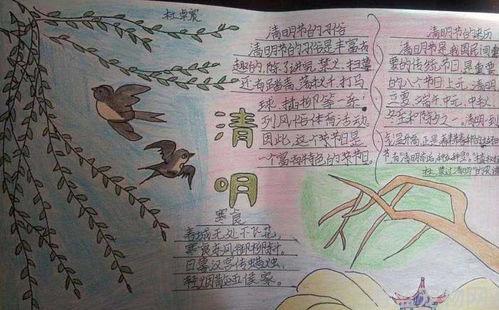 清明节的习俗
清明节的习俗是丰富有
趣的,除了讲究禁火、扫墓
还有踏青、荡秋千、打马
球、插柳等一系
列风俗体育活动
因此,这个节日是
一个富有特色的节日
清明节的来历
清明节是我国民间重
要的传统节日,是重要
的八个节日上元、清明
立夏、端午、中元、中秋
冬至和除夕之一,清明
清
明
寒食
春城无处不飞花,
寒食东风御柳斜。
日暮汉宫传蜡烛,
轻烟散入五侯家。